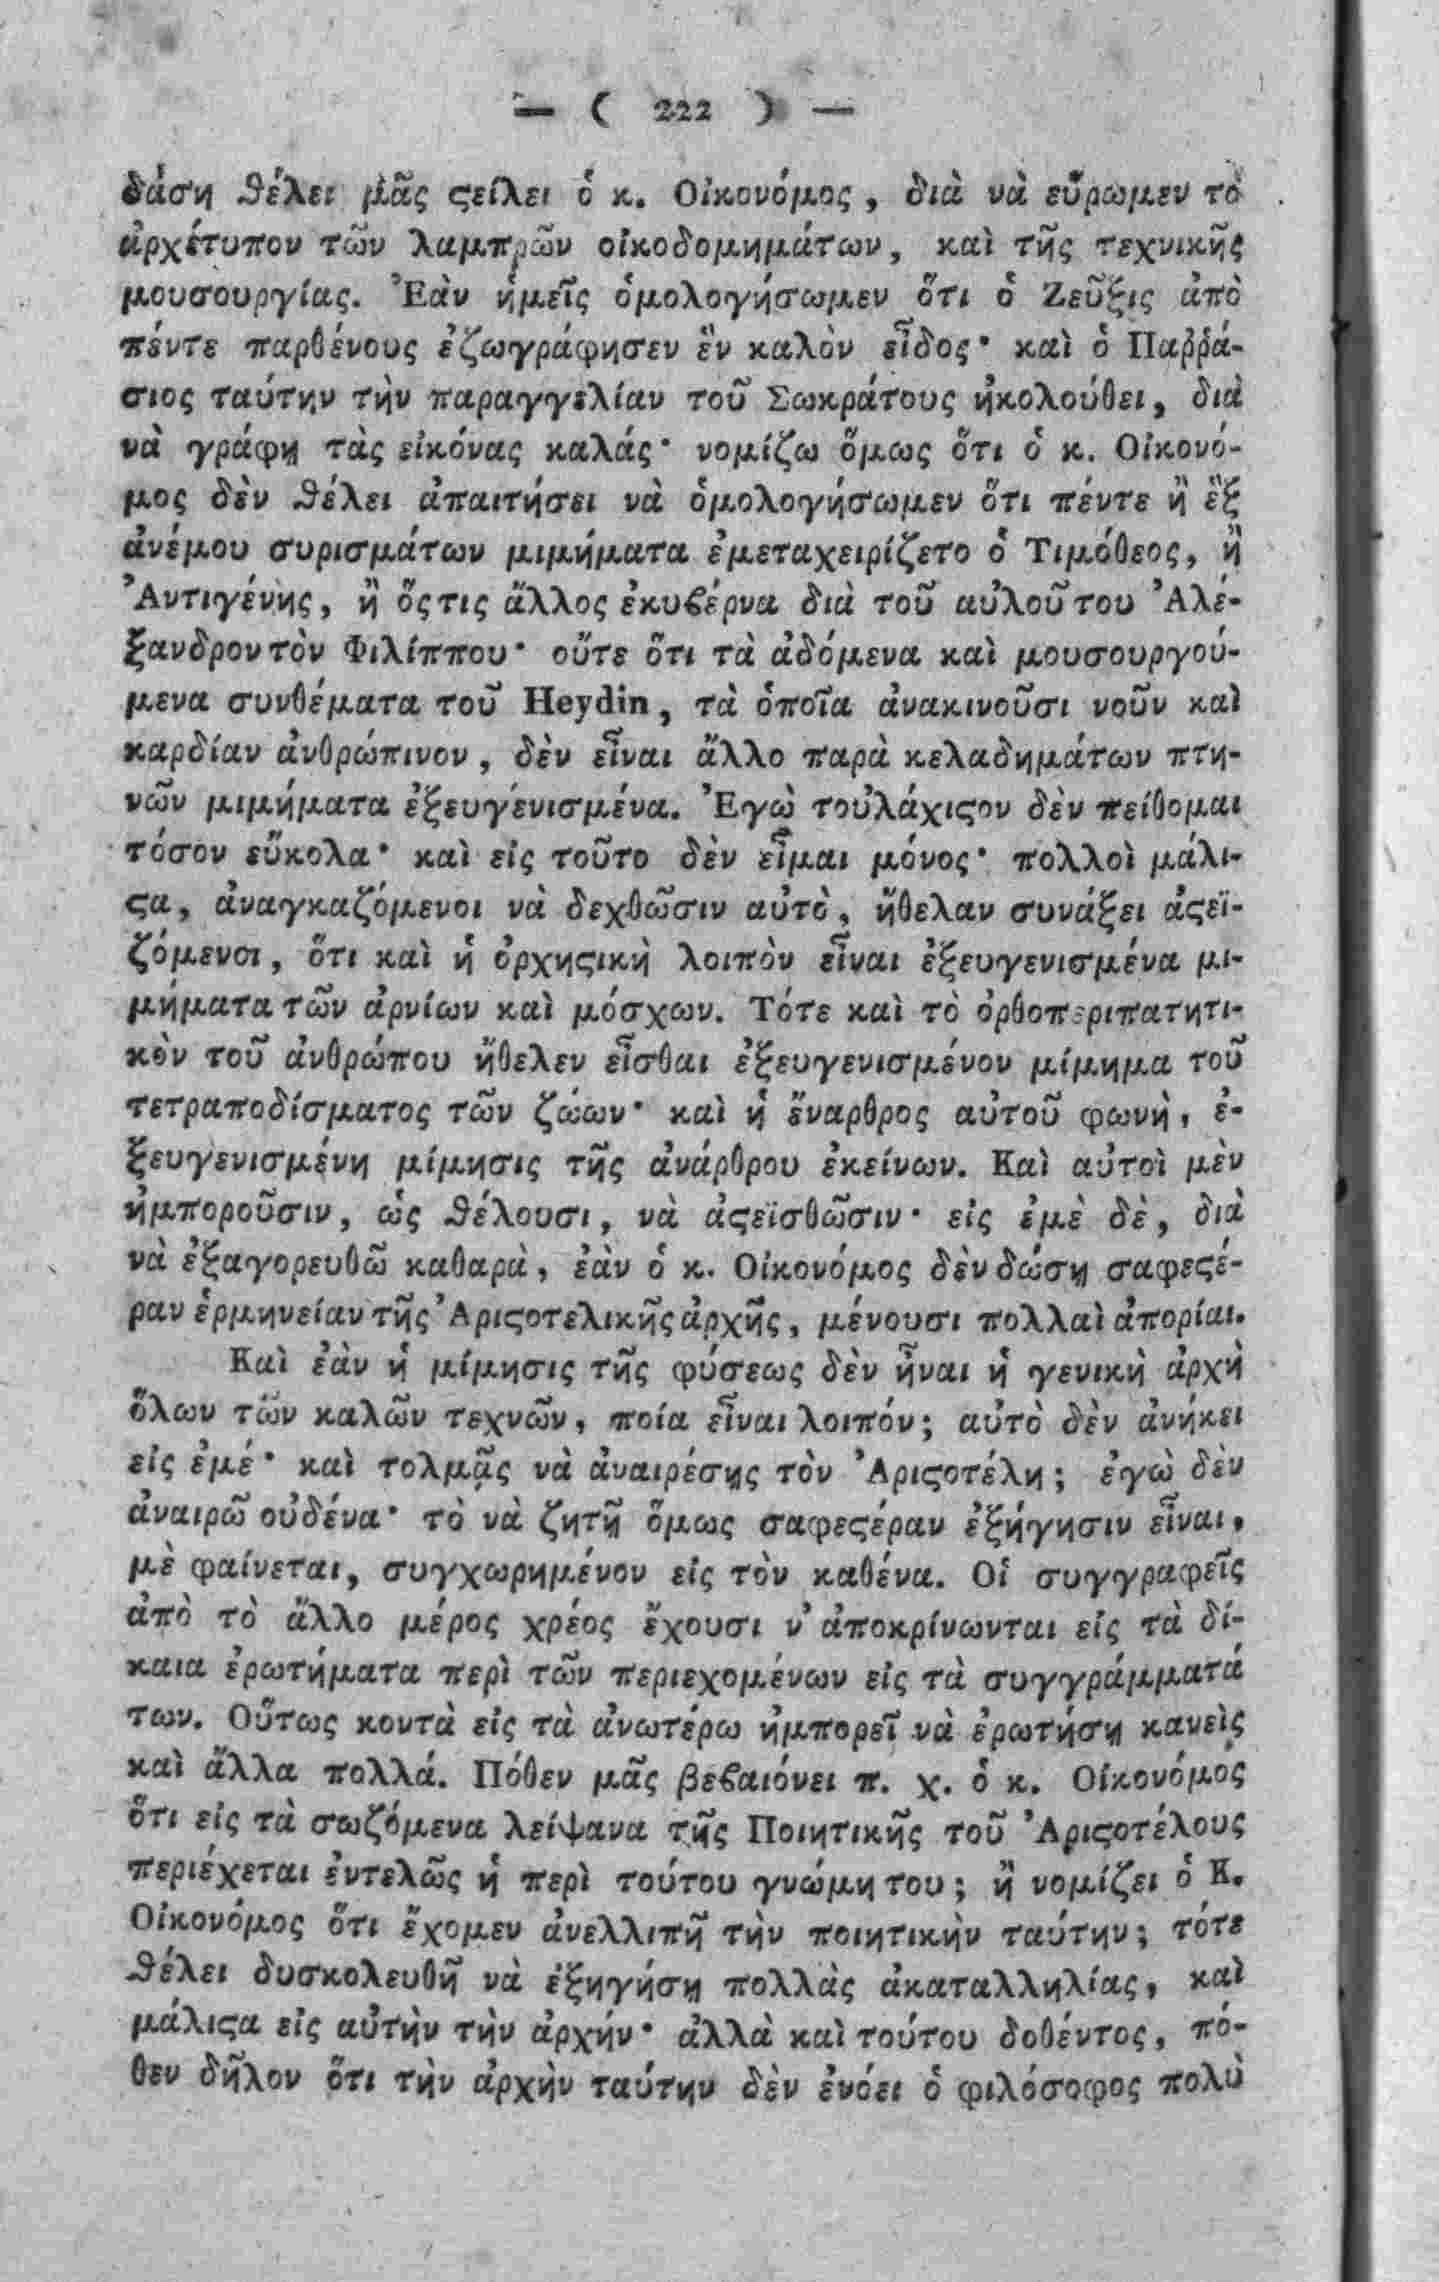 — ( 222 ) —
δάση θέλει μᾶς ϛείλει ὁ κ. Οἰκονόμος, διὰ νὰ εὕρωμεν τὸ
ἀρχέτυπον τῶν λαμπρῶν οἰκοδομημάτων, καὶ τῆς τεχνικῆς
μουσουργίας. Ἐὰν ἡμεῖς ὁμολογήσωμεν ὅτι ὁ Ζεῦξις ἀπὸ
πέντε παρθένους ἐζωγράφησεν ἓν καλὸν εἶδος· καὶ ὁ Παῤῥά-
σιος ταύτην τὴν παραγγελίαν τοῦ Σωκράτους ἠκολούθει, διὰ
νὰ γράφῃ τὰς εἰκόνας καλάς· νομίζω ὅμως ὅτι ὁ κ. Οἰκονό-
μος δὲν θέλει ἀπαιτήσει νὰ ὁμολογήσωμεν ὅτι πέντε ἢ ἓξ
ἀνέμου συρισμάτων μιμήματα ἐμεταχειρίζετο ὁ Τιμόθεος, ἢ
Ἀντιγένης, ἢ ὅςτις ἄλλος ἐκυϐέρνα διὰ τοῦ αὐλοῦ του Ἀλέ-
ξανδρον τὸν Φιλίππου· οὔτε ὅτι τὰ ἀδόμενα καὶ μουσουργού-
μενα συνθέματα τοῦ Heydin, τὰ ὁποῖα ἀνακινοῦσι νοῦν καὶ
καρδίαν ἀνθρώπινον, δὲν εἶναι ἄλλο παρὰ κελαδημάτων πτη-
νῶν μιμήματα ἐξευγενισμένα. Ἐγὼ τοὐλάχιϛον δὲν πείθομαι
τόσον εὔκολα· καὶ εἰς τοῦτο δὲν εἶμαι μόνος· πολλοὶ μάλι-
ϛα, ἀναγκαζόμενοι νὰ δεχθῶσιν αὐτὸ, ἤθελαν συνάξει ἀϛεϊ-
ζόμενοι, ὅτι καὶ ἡ ὀρχηϛικὴ λοιπὸν εἶναι ἐξευγενισμένα μι-
μήματα τῶν ἀρνίων καὶ μόσχων. Τότε καὶ τὸ ὀρθοπεριπατητι-
κὸν τοῦ ἀνθρώπου ἤθελεν εἶσθαι ἐξευγενισμένον μίμημα τοῦ
τετραποδίσματος τῶν ζώων· καὶ ἡ ἔναρθρος αὐτοῦ φωνὴ, ἐ-
ξευγενισμένη μίμησις τῆς ἀνάρθρου ἐκείνων. Καὶ αὐτοὶ μὲν
ἠμποροῦσιν, ὡς θέλουσι, νὰ ἀϛεϊσθῶσιν· εἰς ἐμὲ δὲ, διὰ
νὰ ἐξαγορευθῶ καθαρὰ, ἐὰν ὁ κ. Οἰκονόμος δὲν δώσῃ σαφεϛέ-
ραν ἑρμηνείαν τῆς Ἀριϛοτελικῆς ἀρχῆς, μένουσι πολλαὶ ἀπορίαι.
Καὶ ἐὰν ἡ μίμησις τῆς φύσεως δὲν ἦναι ἡ γενικὴ ἀρχὴ
ὅλων τῶν καλῶν τεχνῶν, ποία εἶναι λοιπόν; αὐτὸ δὲν ἀνήκει
εἰς ἐμέ· καὶ τολμᾷς νὰ ἀναιρέσῃς τὸν Ἀριϛοτέλη; ἐγὼ δὲν
ἀναιρῶ οὐδένα· τὸ νὰ ζητῇ ὅμως σαφεϛέραν ἐξήγησιν εἶναι,
μὲ φαίνεται, συγχωρημένον εἰς τὸν καθένα. Οἱ συγγραφεῖς
ἀπὸ τὸ ἄλλο μέρος χρέος ἔχουσι ν' ἀποκρίνωνται εἰς τὰ δί-
καια ἐρωτήματα περὶ τῶν περιεχομένων εἰς τὰ συγγράμματά
των. Οὕτως κοντὰ εἰς τὰ ἀνωτέρω ἠμπορεῖ νὰ ἐρωτήσῃ κανεὶς
καὶ ἄλλα πολλά. Πόθεν μᾶς βεϐαιόνει π. χ. ὁ κ. Οἰκονόμος
ὅτι εἰς τὰ σωζόμενα λείψανα τῆς Ποιητικῆς τοῦ Ἀριϛοτέλους
περιέχεται ἐντελῶς ἡ περὶ τούτου γνώμη του; ἢ νομίζει ὁ Κ.
Οἰκονόμος ὅτι ἔχομεν ἀνελλιπῆ τὴν ποιητικὴν ταύτην; τότε
θέλει δυσκολευθῆ νὰ ἐξηγήσῃ πολλὰς ἀκαταλληλίας, καὶ
μάλιϛα εἰς αὐτὴν τὴν ἀρχήν· ἀλλὰ καὶ τούτου δοθέντος, πό-
θεν δῆλον ὅτι τὴν ἀρχὴν ταύτην δὲν ἐνόει ὁ φιλόσοφος πολὺ